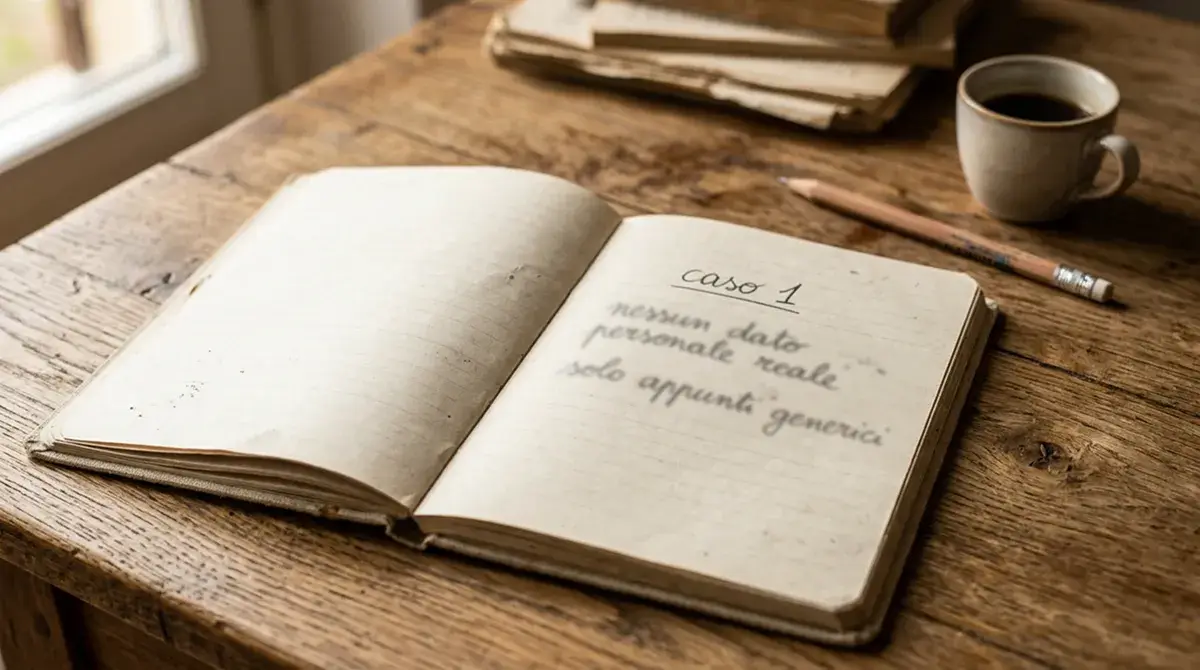 caso 1
nessun dato
personale reale
solo appunti generici